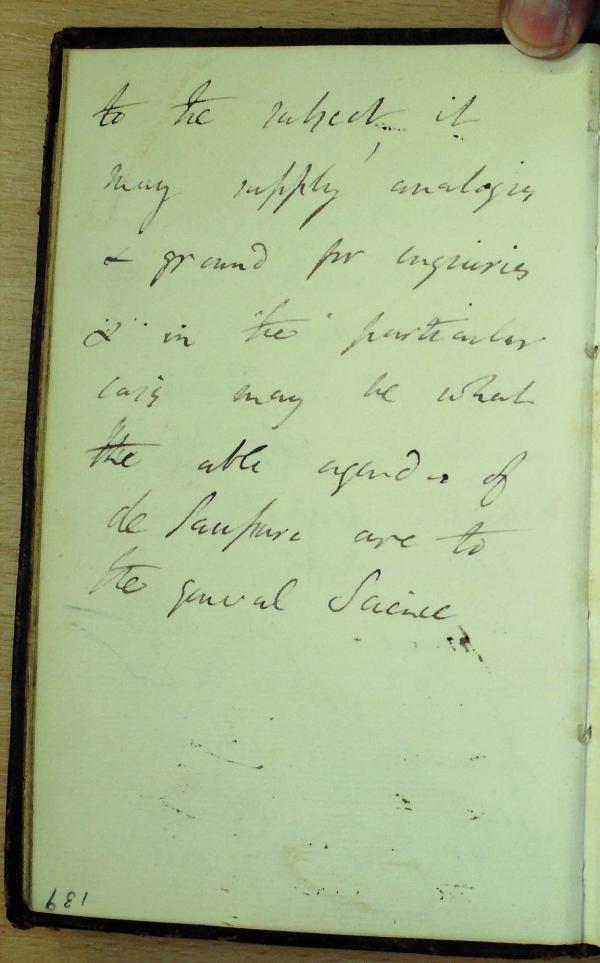 to the subject, it
may supply analogies
& ground for enquiries
& in the particular
case may be what
the able agenda of
de Saussure are to
the general Science
139